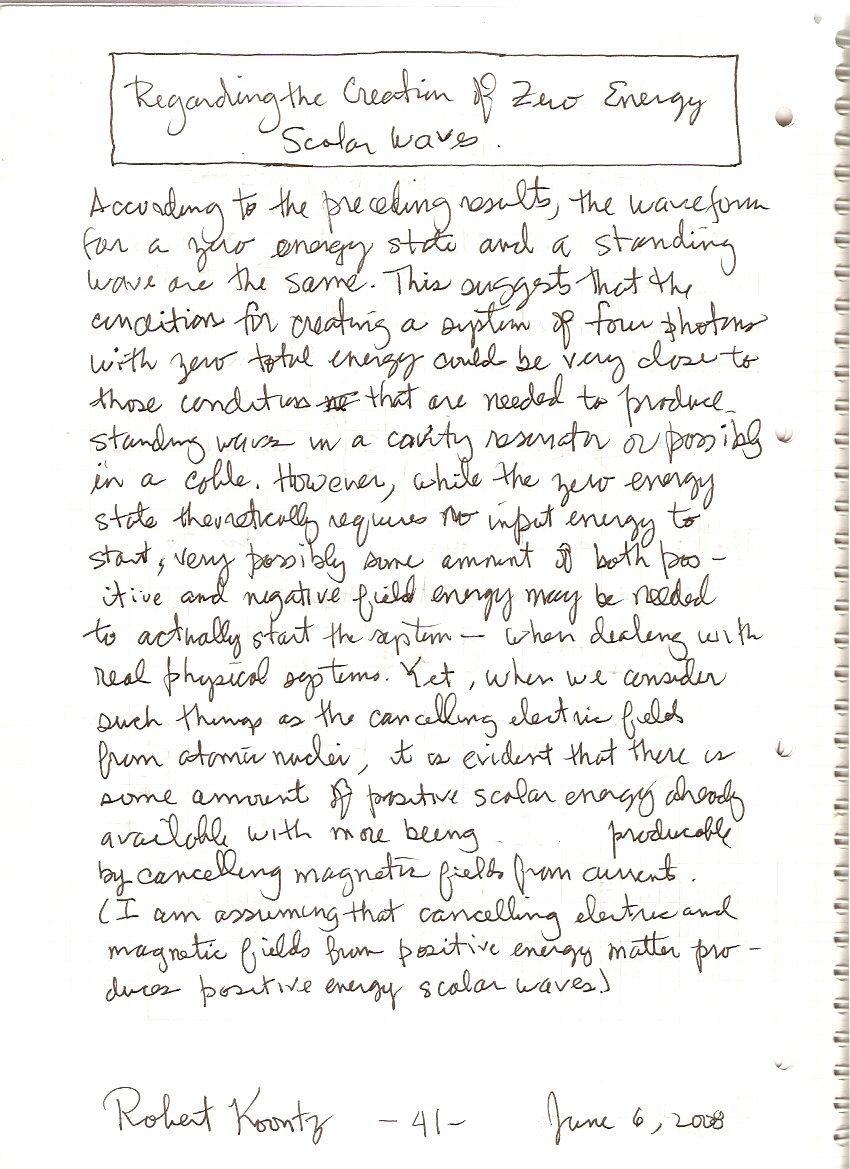 Regarding the Creation of Zero Energy
Scalar Waves.
According to the preceding results, the waveform
for a zero energy state and a standing
wave are the same. This suggests that the
conditions for creating a system of four photons
with zero total energy could be very close to
those conditions that are needed to produce
standing waves in a cavity resonator or possibly
in a cable. However, while the zero energy
state theoretically requires no input energy to
start, very possibly some amount of both pos-
itive and negative field energy may be needed
to actually start the system — when dealing with
real physical systems. Yet, when we consider
such things as the cancelling electric fields
from atomic nuclei, it is evident that there is
some amount of positive scalar energy already
available with more being producable
by cancelling magnetic fields from current.
(I am assuming that cancelling electric and
magnetic fields from positive energy matter pro-
duces positive energy scalar waves.)
Robert Koontz - 41 - June 6, 2008